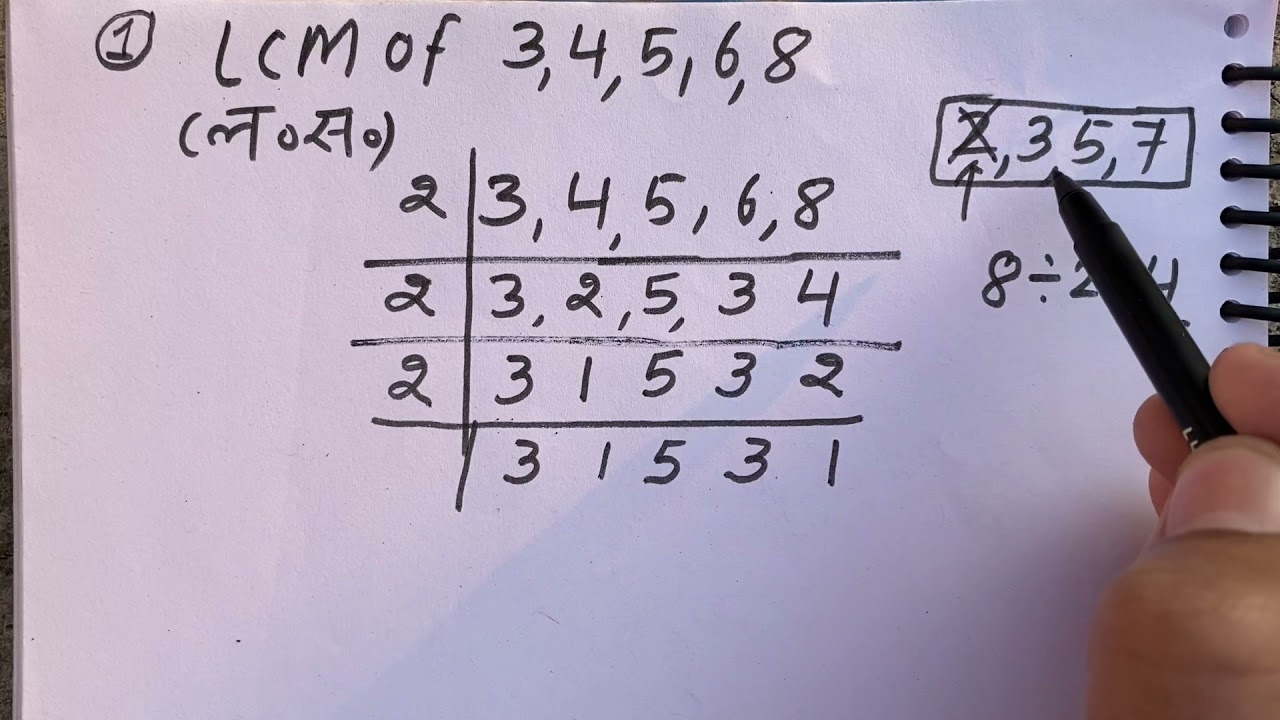 ① LCM of 3,4,5,6,8
(ल॰स॰)
2, 3 5, 7
2 3, 4, 5, 6, 8
8÷2 4
2 3, 2, 5, 3 4
2 3 1 5 3 2
3 1 5 3 1